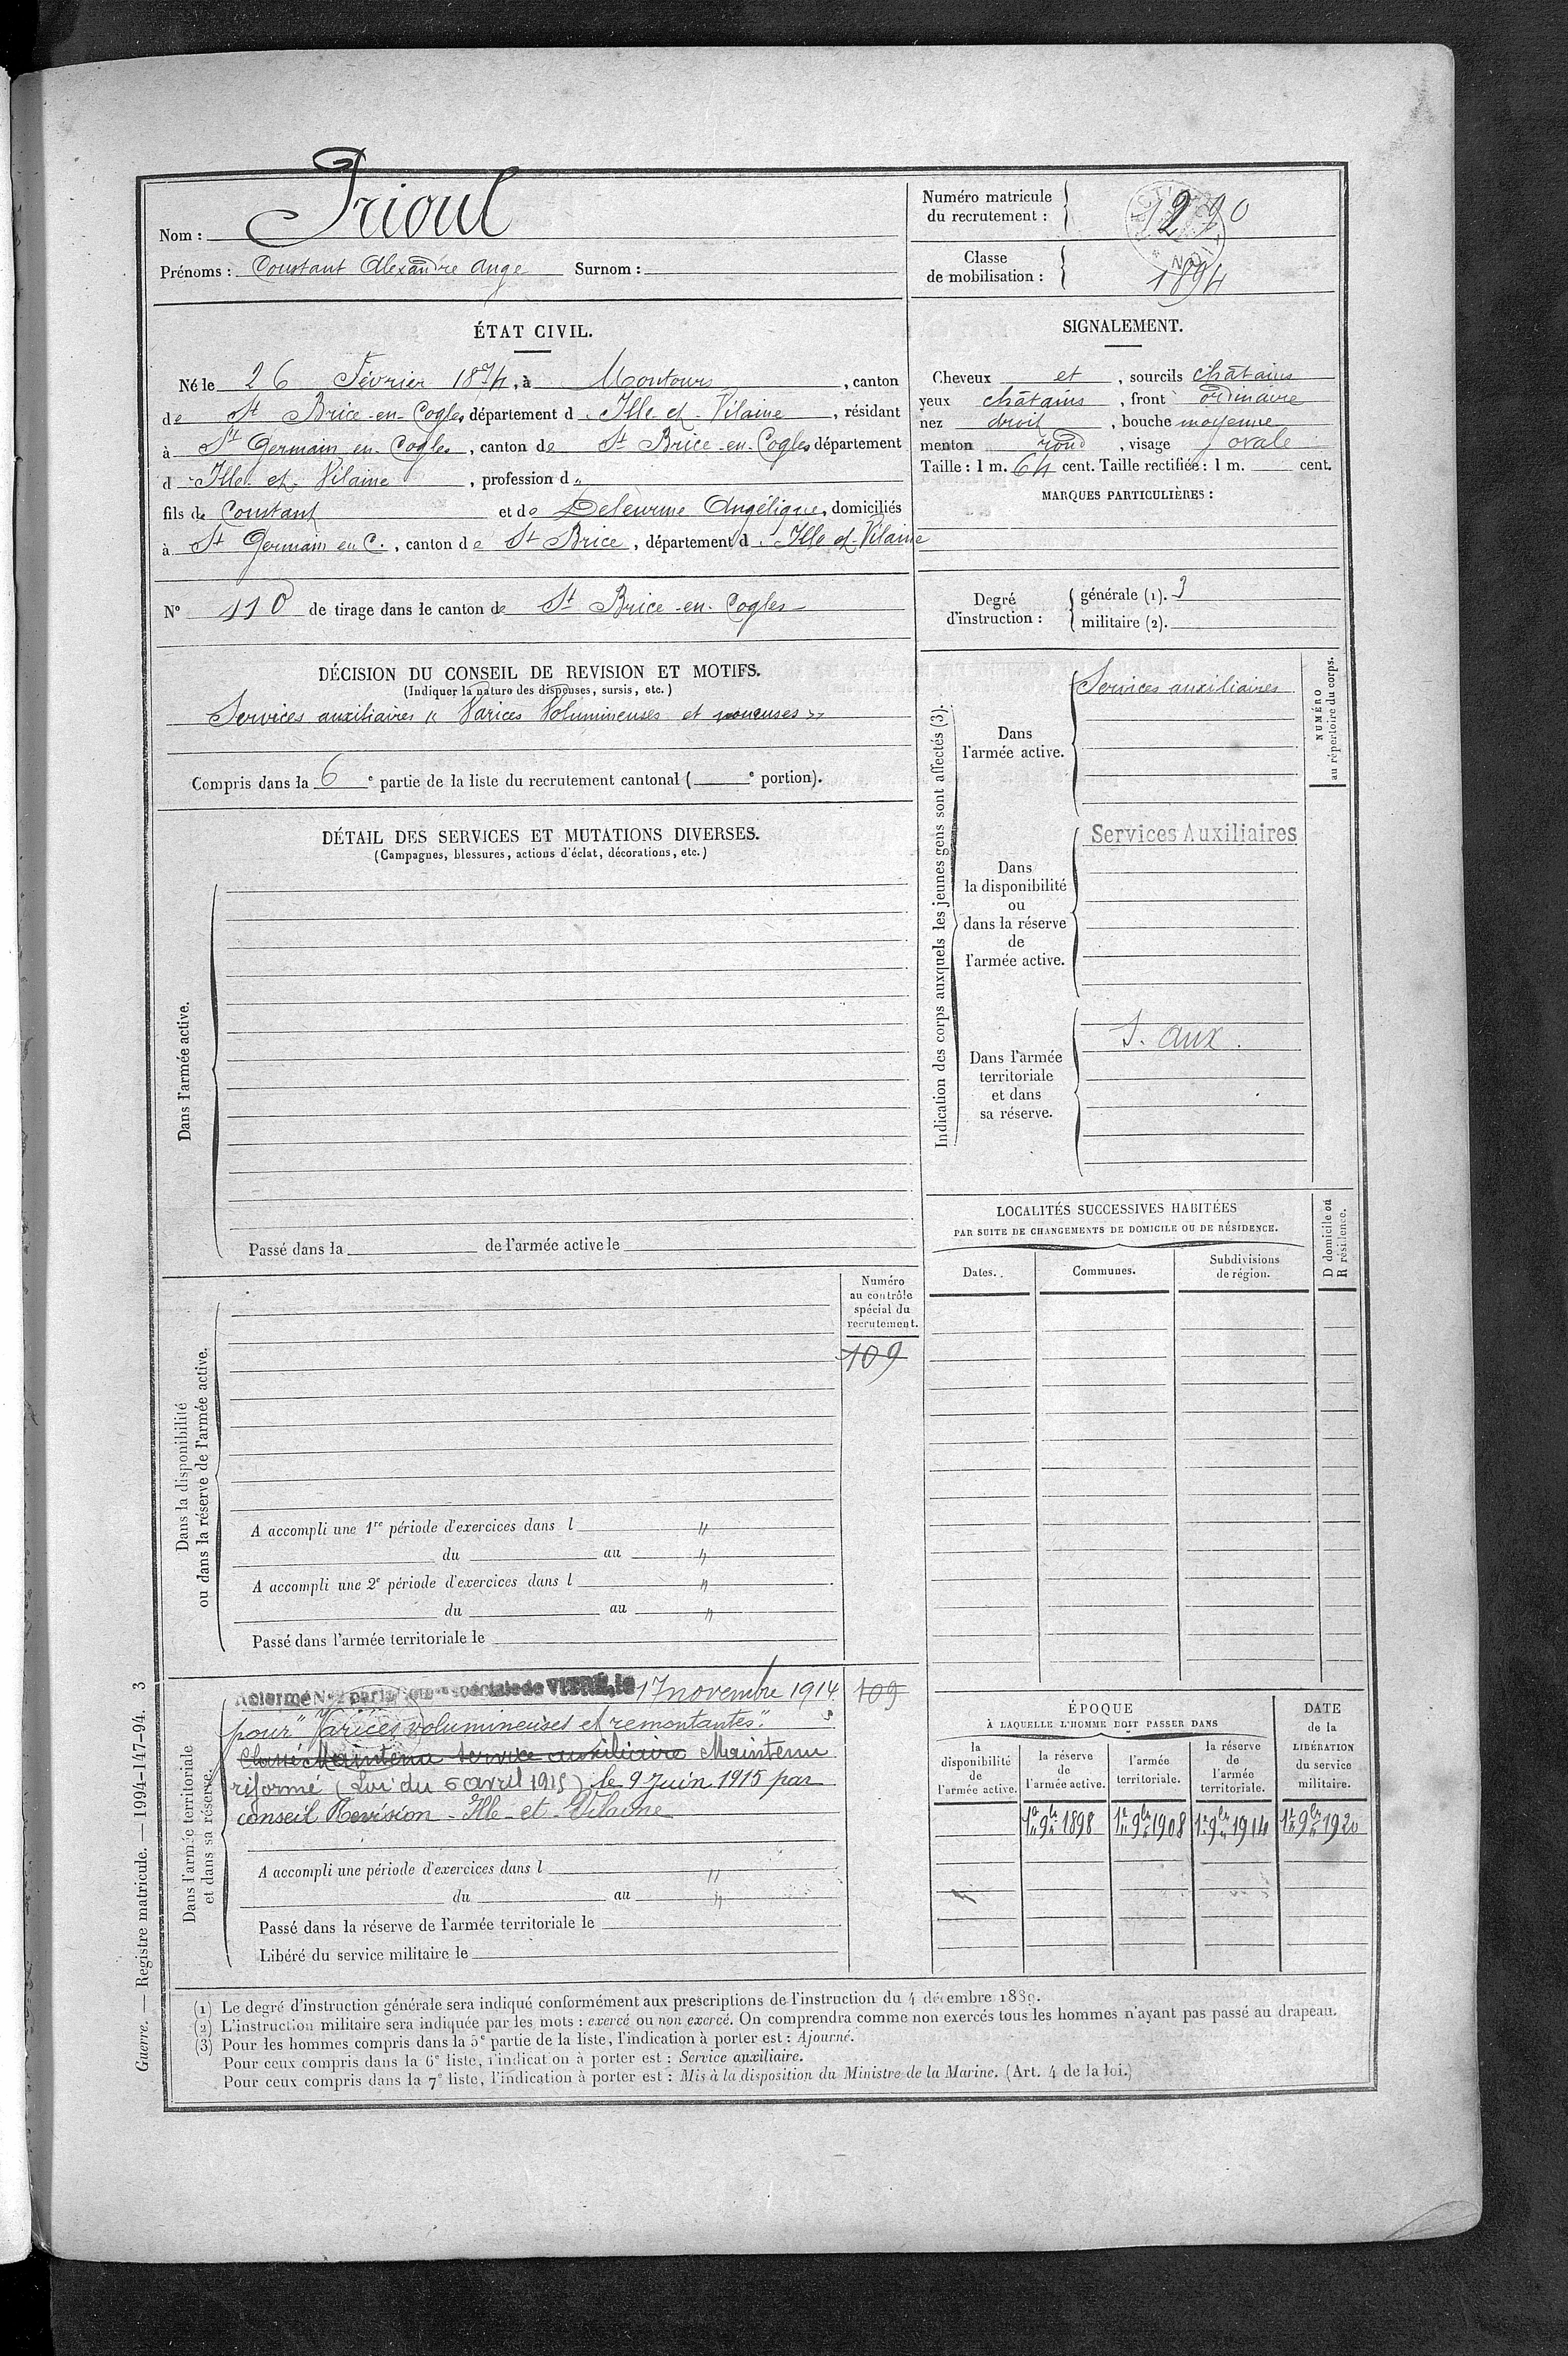 Nom : Prioul
Prénoms : Constant Alexandre Ange Surnom :
Numéro matricule du recrutement : 1290
Classe de mobilisation : 1894
ÉTAT CIVIL.
Né le 26 Février 1874, à Montours, canton
de St Brice-en-Cogles, département d Ille et Vilaine, résidant
à St Germain en Cogles, canton de St Brice-en-Cogles département
d Ille et Vilaine, profession d "
fils de Constant et de Angélique, domiciliés
à St Germain en C., canton de St Brice, département d Ille et Vilaine
N° 110 de tirage dans le canton de St Brice-en-Cogles
SIGNALEMENT.
Cheveux et, sourcils châtains
yeux châtains, front ordinaire
nez droit, bouche moyenne
menton rond, visage ovale
Taille : 1 m. 64 cent. Taille rectifiée : 1 m. cent.
MARQUES PARTICULIÈRES :
Degré d'instruction : générale (1). 3
militaire (2).
DÉCISION DU CONSEIL DE REVISION ET MOTIFS.
(Indiquer la nature des dispenses, sursis, etc.)
Services auxiliaires " Varices Volumineuses et noueuses "
Compris dans la 6 e partie de la liste du recrutement cantonal ( e portion).
DÉTAIL DES SERVICES ET MUTATIONS DIVERSES.
(Campagnes, blessures, actions d'éclat, décorations, etc.)
Dans l'armée active.
Passé dans la de l'armée active le
Dans la disponibilité
ou dans la réserve de l'armée active.
Numéro
au contrôle
spécial du
recrutement.
109
A accompli une 1re période d'exercices dans l "
du au "
A accompli une 2e période d'exercices dans l "
du au "
Passé dans l'armée territoriale le
Dans l'armée territoriale
et dans sa réserve.
Réformé N° 2 par la spéciale de VITRÉ, le 17 novembre 1914 109
pour "Varices volumineuses et remontantes".
Classé Maintenu service auxiliaire Maintenu
réformé (Loi du 6 avril 1915) le 9 Juin 1915 par
conseil Revision - Ille-et-Vilaine
A accompli une période d'exercices dans l "
du au "
Passé dans la réserve de l'armée territoriale le
Libéré du service militaire le
Indication des corps auxquels les jeunes gens sont affectés (3).
NUMÉRO
au répertoire du corps.
Dans
l'armée active.
Services auxiliaires
Dans
la disponibilité
ou
dans la réserve
de
l'armée active.
Services Auxiliaires
Dans l'armée
territoriale
et dans
sa réserve.
S. aux.
LOCALITÉS SUCCESSIVES HABITÉES
PAR SUITE DE CHANGEMENTS DE DOMICILE OU DE RÉSIDENCE.
Dates. Communes. Subdivisions de région.
D domicile ou
R résidence.
ÉPOQUE
À LAQUELLE L'HOMME DOIT PASSER DANS
la disponibilité de l'armée active.
la réserve de l'armée active.
l'armée territoriale.
la réserve de l'armée territoriale.
DATE
de la
LIBÉRATION
du service
militaire.
1er 9bre 1898 1er 9bre 1908 1er 9bre 1914 1er 9bre 1920
(1) Le degré d'instruction générale sera indiqué conformément aux prescriptions de l'instruction du 4 décembre 1889.
(2) L'instruction militaire sera indiquée par les mots : exercé ou non exercé. On comprendra comme non exercés tous les hommes n'ayant pas passé au drapeau.
(3) Pour les hommes compris dans la 5e partie de la liste, l'indication à porter est : Ajourné.
Pour ceux compris dans la 6e liste, l'indication à porter est : Service auxiliaire.
Pour ceux compris dans la 7e liste, l'indication à porter est : Mis à la disposition du Ministre de la Marine. (Art. 4 de la loi.)
Guerre. — Registre matricule. — 1994-147-94. 3